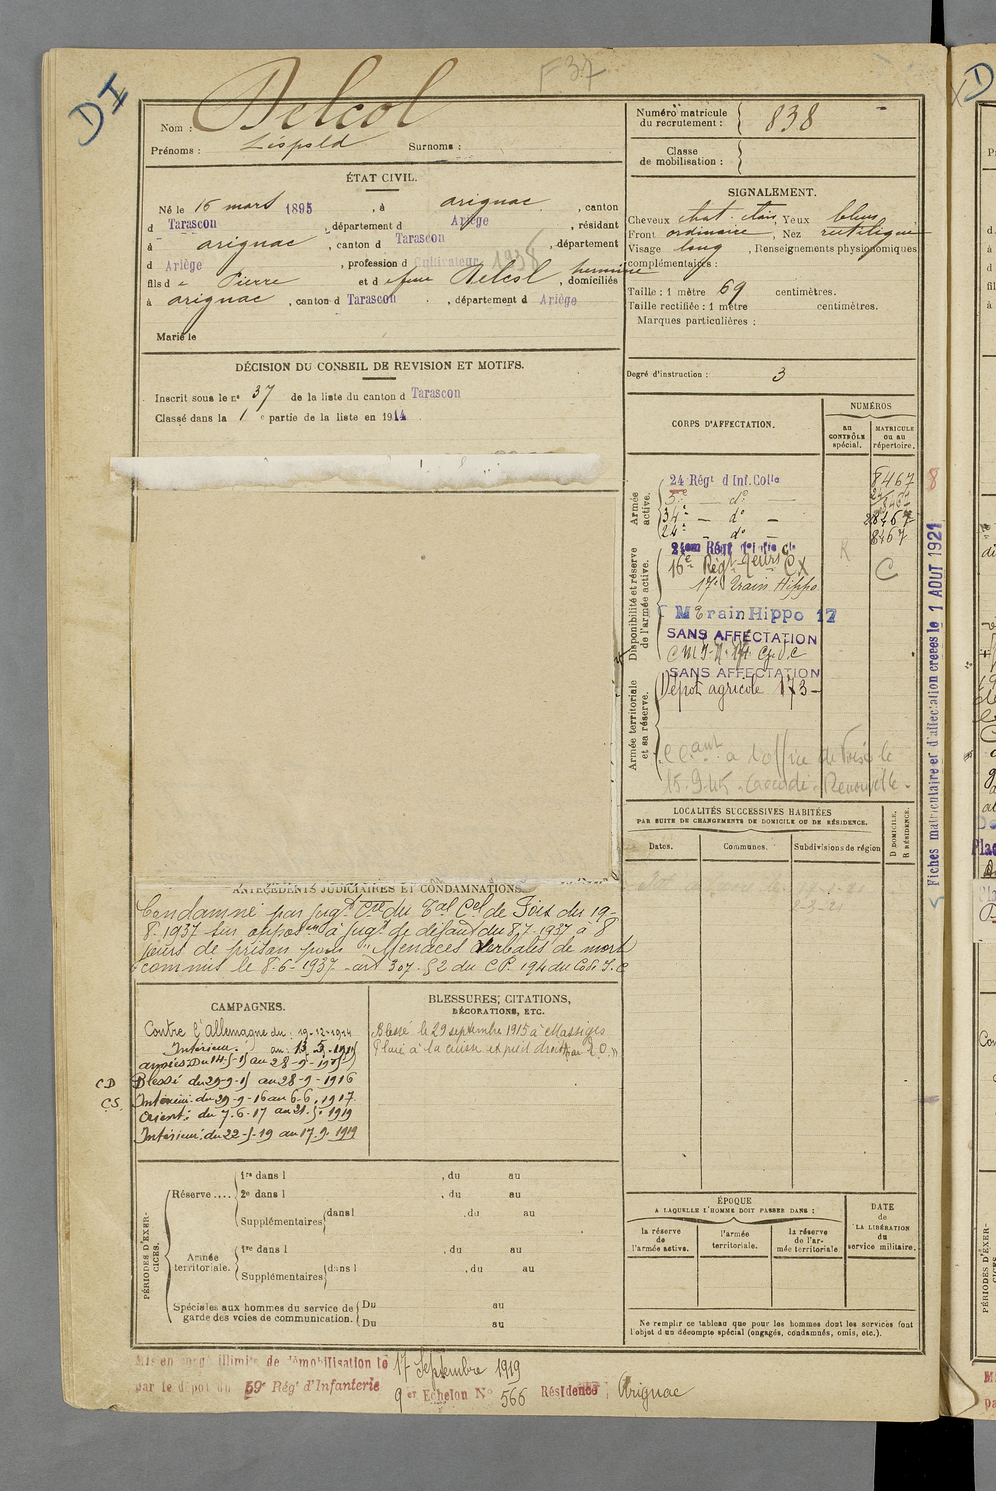 DI
F 37
Nom : Delcol
Prénoms : Léopold Surnoms :
ÉTAT CIVIL.
Né le 16 mars 1895, à arignac, canton
d Tarascon, département d Ariège, résidant
à arignac, canton d Tarascon, département
d Ariège, profession d Cultivateur
fils de Pierre et de feue Delcol hermine, domiciliés
à arignac, canton d Tarascon, département d Ariège
Marié le
DÉCISION DU CONSEIL DE REVISION ET MOTIFS.
Inscrit sous le n° 37 de la liste du canton d Tarascon
Classé dans la 1 e partie de la liste en 1914
ANTÉCÉDENTS JUDICIAIRES ET CONDAMNATIONS.
Condamné par jugt du Tal Cel de Foix du 19-
8.1937 sur opposon à jugt de défaut du 8.7.1937 à 8
jours de prison pour "Menaces verbales de mort
commis le 8-6-1937 art 307 §2 du CP. 194 du Code I.C
CAMPAGNES.
Contre l'Allemagne du : 19-12-1914
Intérieur. au : 13.5.1915
armées: Du 14-5-15 au 28-9-1915
CD Blessé du 29-9-15 au 28-9-1916
CS. Intérieur: du 29-9-16 au 6-6.1917
Orient: du 7.6.17 au 21.5.1919
Intérieur: du 22-5-19 au 17.9.1919
BLESSURES, CITATIONS,
DÉCORATIONS, ETC.
Blessé le 29 septembre 1915 à Massiges
Plaie à la cuisse et pied droits
PÉRIODES D'EXERCICES.
Réserve ....
1re dans l , du au
2e dans l , du au
Supplémentaires dans l , du au
Armée territoriale.
1re dans l , du au
Supplémentaires dans l , du au
Spéciales aux hommes du service de garde des voies de communication.
Du au
Du au
Numéro matricule du recrutement : 838
Classe de mobilisation :
SIGNALEMENT.
Cheveux chat. clair, Yeux bleus
Front ordinaire, Nez rectiligne
Visage long, Renseignements physionomiques
complémentaires :
Taille : 1 mètre 69 centimètres.
Taille rectifiée : 1 mètre centimètres.
Marques particulières :
Degré d'instruction : 3
CORPS D'AFFECTATION.
NUMÉROS
au CONTRÔLE spécial.
MATRICULE ou au répertoire.
Armée active.
24 Régt d Inf. Colle 8467
5e — do —
34e — do —
24e — do — 8467
Disponibilité et réserve de l'armée active.
17e Train Hippo.
Train Hippo 17
SANS AFFECTATION
SANS AFFECTATION
Armée territoriale et sa réserve.
Dépot agricole 173 -
C
Fiches matriculaire et d'affectation créées le 1 AOUT 1921
LOCALITÉS SUCCESSIVES HABITÉES
PAR SUITE DE CHANGEMENTS DE DOMICILE OU DE RÉSIDENCE.
Dates. Communes. Subdivisions de région
D DOMICILE,
R RÉSIDENCE.
ÉPOQUE
A LAQUELLE L'HOMME DOIT PASSER DANS :
la réserve de l'armée active.
l'armée territoriale.
la réserve de l'armée territoriale
DATE de LA LIBÉRATION du service militaire.
Ne remplir ce tableau que pour les hommes dont les services font
l'objet d'un décompte spécial (engagés, condamnés, omis, etc.).
Mis en congé illimité de démobilisation le 17 Septembre 1919
par le dépôt du 59e Régt d'Infanterie
9 Echelon N° 566 Résidence : Arignac